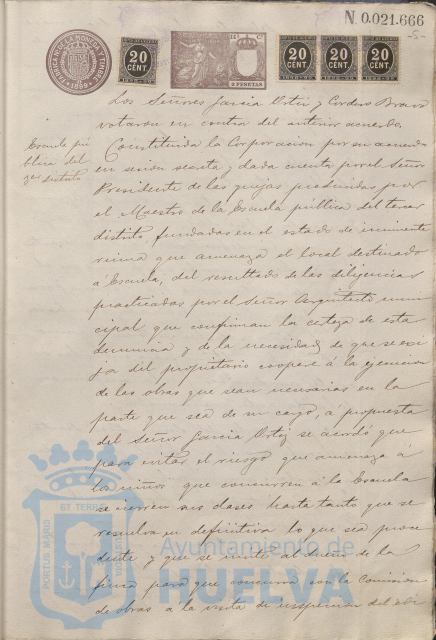 N. 0.021.666
-5-
FABRICA DE LA MONEDA Y TIMBRE
1899
20
CENT.
1898-99
2 PESETAS
20
CENT.
1898-99
20
CENT.
1898-99
20
CENT.
1898-99
Los Señores Garcia Ortiz y Cordero Bravo
votaron en contra del anterior acuerdo.
Escuela pú
blica del
3er distrito
Constituida la Corporacion por su acuerdo
en sesión secreta y dada cuenta por el Señor
Presidente de las quejas producidas por
el Maestro de la Escuela pública del tercer
distrito, fundadas en el estado de inminente
ruina que amenaza el local destinado
a Escuela, del resultado de las diligencias
practicadas por el Señor Arquitecto muni
cipal que confirman la certeza de esta
denuncia y de la necesidad de que se exi
ja del propietario coopere á la ejecucion
de las obras que sean necesarias en la
parte que sea de su cargo, á propuesta
del Señor Garcia Ortiz se acordó que
para evitar el riesgo que amenaza á
los niños que concurren á la Escuela
se cierren sus clases hasta tanto que se
resuelva en definitiva lo que sea proce
dente y que se invite al dueño de la
finca para que concurra con la Comision
de obras a la visita de inspeccion del edi
PORTUS MARIS ET TERRAE
Ayuntamiento de
HUELVA